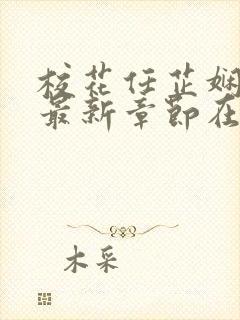 校花任芷娴
最新章节在
木采